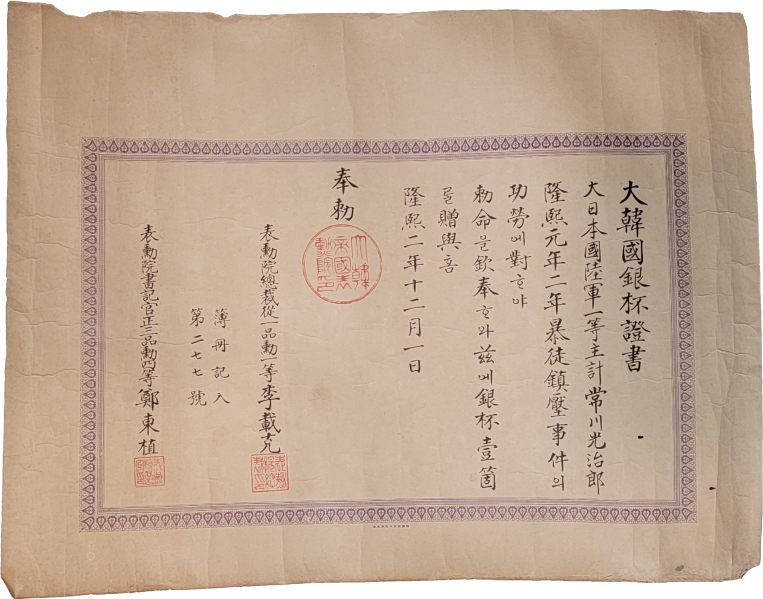 大韓國銀杯證書
大日本國陸軍一等主計常川光治郎
隆熙元年二年暴徒鎭壓事件의
功勞에對ᄒᆞ야
勅命을欽奉ᄒᆞ와玆에銀杯壹箇
를贈與喜
隆熙二年十二月一日
奉勅
大韓帝國表勳院印
表勳院總裁從一品勳一等李載克
簿冊記入
第二七七號
表勳院書記官正三品勳四等鄭東植